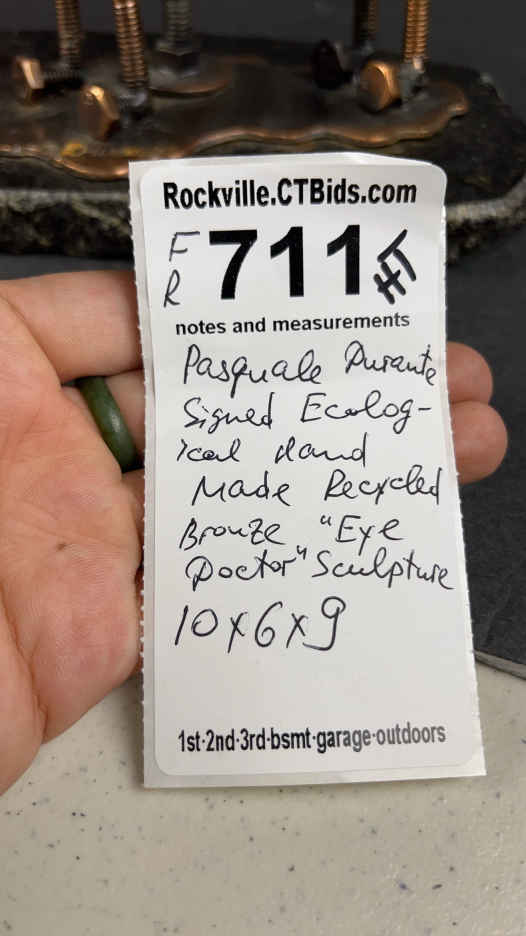 Rockville.CTBids.com
F
R
711
HT
notes and measurements
Pasquale Durante
Signed Ecolog-
ical Hand
Made Recycled
Bronze "Eye
Doctor" Sculpture
10x6x9
1st·2nd·3rd·bsmt·garage·outdoors